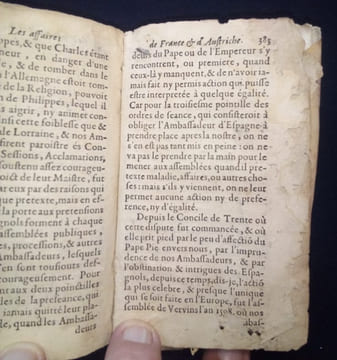 Les affaires
ppes, & que Charles étant
neur, en danger d'une
, & de tomber dans le
l'Allemagne estoit tom-
de la Religion, pouvoir
n de Philippes, lequel il
s aigrir, ny animer con-
insi cette foiblesse que &
de Lorraine, & nos Am-
firent paroistre és Con-
Sessions, Acclamations,
soustenu assez courageu-
oict de leur Maistre, fut
ar eux par des raisons qui
que pretexte, mais en ef-
la porte aux pretensions
gnols forment à chaque
assemblées publiques,
s, processions, & autres
mbassadeurs, lesquels
en sont tousiours def-
courageusement. Pour
nt aux deux poinctilles
les de la preseance, qui
jamais quitté leur pla-
le, quand les Ambassa-
deurs
de France & d'Austriche. 383
deurs du Pape ou de l'Empereur s'y
rencontrent, ou premiere, quand
ceux-là y manquent, & de n'avoir ja-
mais fait ny permis action qui puisse
estre interpretée à quelque égalité.
Car pour la troisiesme pointille des
ordres de seance, qui consisteroit à
obliger l'Ambassadeur d'Espagne à
prendre place apres la nostre, on ne
s'en est pas tant mis en peine: on ne
va pas le prendre par la main pour le
mener aux assemblées quand il pre-
texte maladie, affaires, ou autres cho-
ses: mais s'ils y viennent, on ne leur
permet aucune action ny de prefe-
rence, ny d'égalité.
Depuis le Concile de Trente où
cette dispute fut commencée, & où
elle prit pied par le peu d'affectiõ du
Pape Pie envers nous, par l'impru-
dence de nos Ambassadeurs, & par
l'obstination & intrigues des Espa-
gnols, depuis ce temps, dis-je, l'actiõ
la plus celebre, & presque l'unique
qui se soit faite en l'Europe, fut l'as-
semblée de Vervins l'an 1598, où nos
abas-